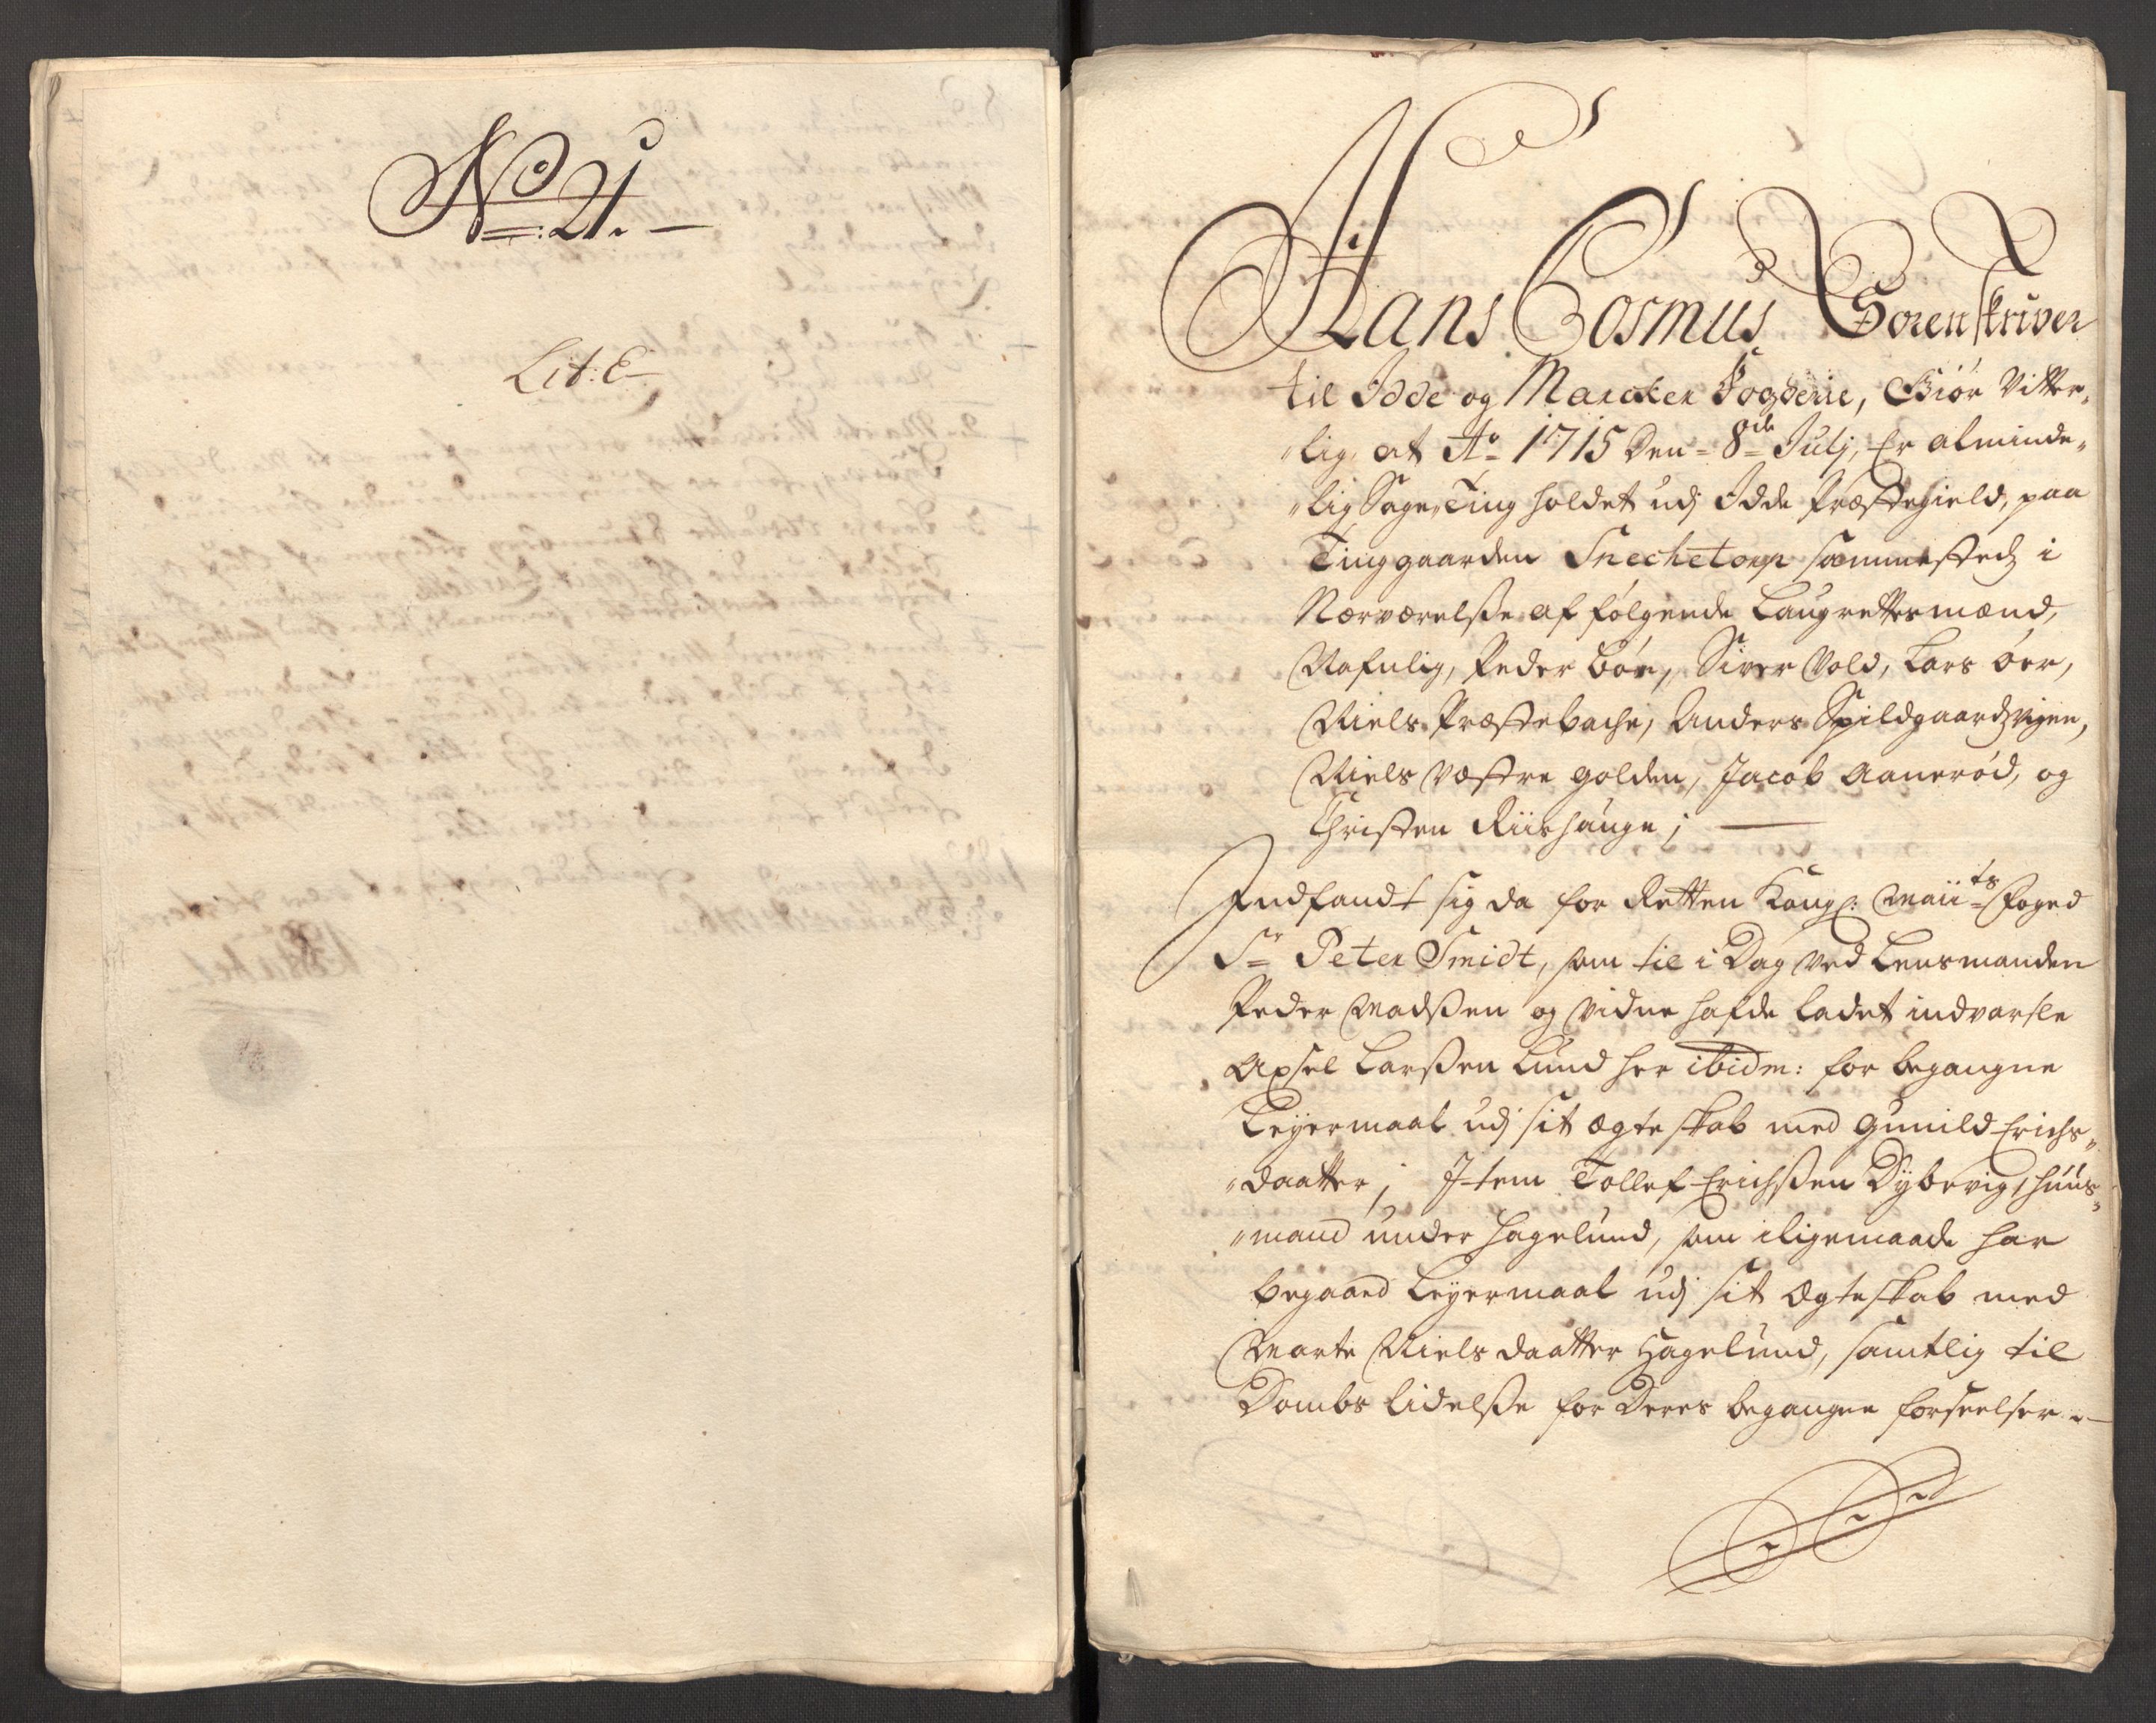 No: 21.
Lit: E
Hans Cosmus Sorenskriver
til Idde og Marcker Fogderie, Giør Vitter„
„lig, at Ao 1715 den 8de Julj, Er alminde„
„lig Sage Ting holdet udj Idde Præstegield, paa
Tinggaarden Snechetorp sammestedz i
Nærværelsse af følgende Laugrettesmænd,
Nafnlig, Peder Bøe, Siver Vold, Lars Øer,
Niels Præstebache, Anders Spildgaardzvigen,
Niels Væstre Golden, Jacob Aanerød, og
Christen Riishauge; —
Indfandt sig da for Retten Kongl: Maiits Foged
Sr Peter Smidt, som til i Dag ved Lensmanden
Peder Madssen og Vidne hafde ladet indvarsle
Axsel Larssen Lund her ibidm: for begangne
Leyermaal udj sit ægteskab med Gunild Erichs„
„daatter; Item Tollef Erichssen Dybevig, huus„
„mand under Hagelund, som iligemaade har
begaaed Leyermaal udj sit Ægteskab med
Marte Nielsdaatter Hagelund, samtlig til
Dombs lidelsse for deres begangne forseelser —